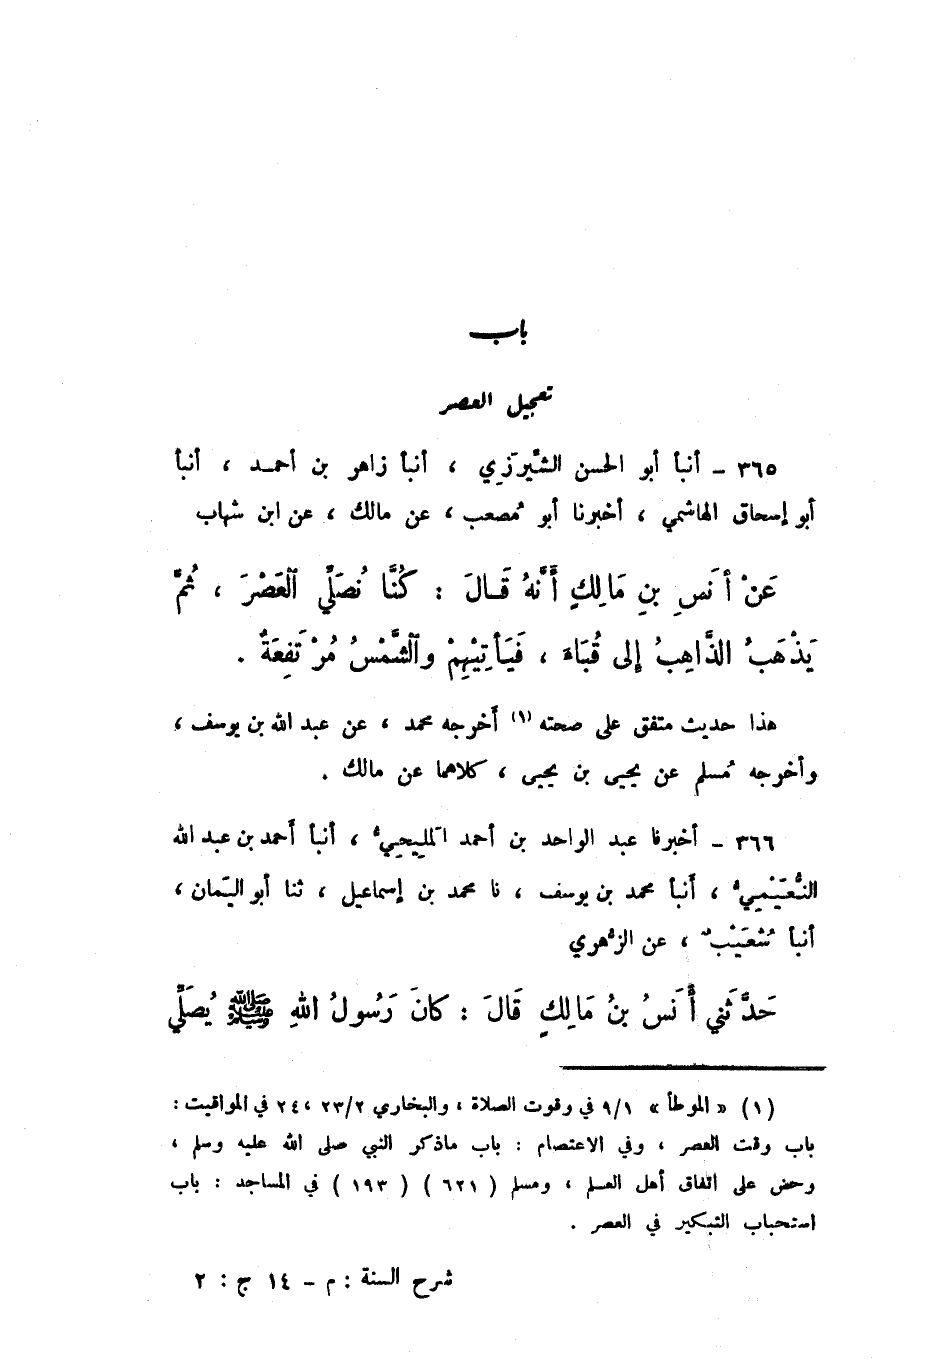 باب
تعجيل العصر
٣٦٥ – أنبأ أبو الحسن الشَّيرَزِي ، أنبأ زاهر بن أحمد ، أنبأ
أبو إسحاق الهاشمي ، أخبرنا أبو مُصعب ، عن مالك ، عن ابن شهاب
عَنْ أَنَسِ بنِ مَالِكٍ أَنَّهُ قَالَ : كُنَّا نُصَلِّي ٱلْعَصْرَ ، ثُمَّ
يَذْهَبُ الذَّاهِبُ إِلى قُبَاءَ ، فَيَأتِيْهِمْ وٱلشَّمْسُ مُرْتَفِعَةٌ .
هذا حديث متفق على صحته (١) أَخرجه محمد ، عن عبد الله بن يوسف ،
وأخرجه مُسلم عن يحيى بن يحيى ، كلاهما عن مالك .
٣٦٦ – أخبرنا عبد الواحد بن أحمد المَلِيحِيُّ ، أنبأ أَحمد بن عبد الله
النُّعَيْمِيُّ ، أَنبأ محمد بن يوسف ، نا محمد بن إسماعيل ، ثنا أبو اليَمان ،
أنبأ شُعَيْبٌ ، عن الزُّهوي
حَدَّثَني أَنَسُ بنُ مَالِكٍ قَالَ : كانَ رَسُولُ اللهِ ﷺ يُصَلِّي
(١) « الموطأ » ٩/١ في وقوت الصلاة ، والبخاري ٢٣/٢ ، ٢٤ في المواقيت :
باب وقت العصر ، وفي الاعتصام : باب ماذكر النبي صلى الله عليه وسلم ،
وحض على اتفاق أهل العلم ، ومسلم ( ٦٢١ ) ( ١٩٣ ) في المساجد : باب
استحباب التبكير في العصر .
شرح السنة : م – ١٤ ج : ٢